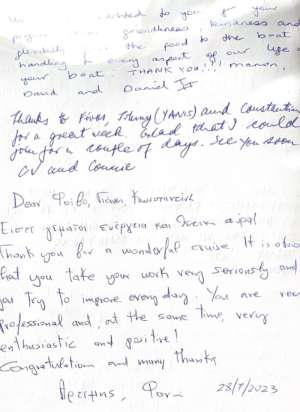 to you for your
greatness, kindness and
the food to the boat
handling to every aspect of our life on
your boat. THANK YOU!!! Manon,
David and Daniel II
Thanks to Fivos, Johnny (YANIS) and Constantin
for a great week. Glad that I could
join for a couple of days. See you soon
and Connie
Dear Φοίβο, Γιάννη, Κωνσταντίνε,
Είστε γεμάτοι ενέργεια και
Thank you for a wonderful cruise. It is obvio
that you take your work very seriously and
you try to improve every day. You are ver
professional and, at the same time, very
enthusiastic and positive!
Congratulations and many thanks,
28/7/2023